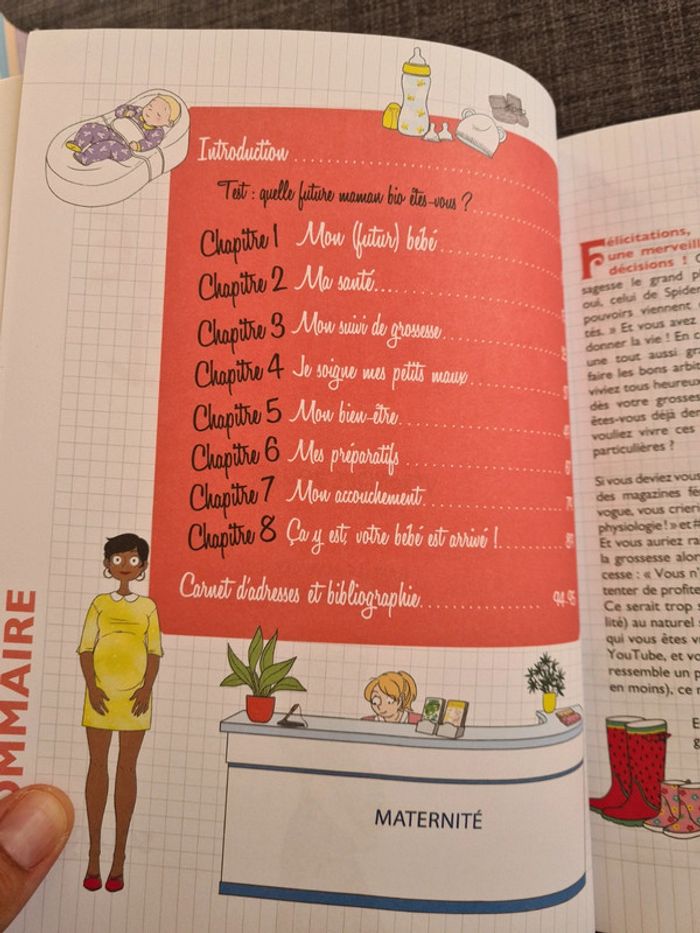 Introduction
Test : quelle future maman bio êtes-vous ?
Chapitre 1 Mon (futur) bébé
Chapitre 2 Ma santé
Chapitre 3 Mon suivi de grossesse
Chapitre 4 Je soigne mes petits maux
Chapitre 5 Mon bien-être
Chapitre 6 Mes préparatifs
Chapitre 7 Mon accouchement
Chapitre 8 Ça y est, votre bébé est arrivé !
Carnet d'adresses et bibliographie 94-95
OMMAIRE
MATERNITÉ
Félicitations,
une mervei
décisions !
sagesse le grand
oui, celui de Spider
pouvoirs viennent
tés. » Et vous avez
donner la vie ! En c
une tout aussi gr
faire les bons arbit
viviez tous heureux
dès votre grosses
êtes-vous déjà de
vouliez vivre ces
particulières ?
Si vous deviez vous
des magazines fé
vogue, vous crier
physiologie ! » et #
Et vous auriez ra
la grossesse alor
cesse : « Vous n'
tenter de profite
Ce serait trop
lité) au naturel
qui vous êtes v
YouTube, et vo
ressemble un p
en moins), ce